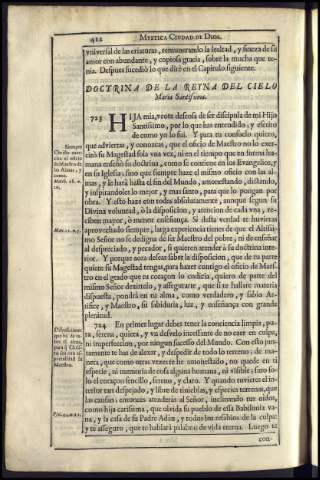 422 MYSTICA CIUDAD DE DIOS.
vniversal de las criaturas, remunerando la lealtad, y fineza de su
amor con abundante, y copiosa gracia, sobre la mucha que te-
nia. Despues sucedió lo que diré en el Capitulo siguiente.
DOCTRINA DE LA REYNA DEL CIELO
Maria Santissima.
723 HIJA mia, veote deseosa de ser discipula de mi Hijo
Santissimo, por lo que has entendido, y escrito
de como yo lo fui. Y para tu consuelo quiero,
que adviertas, y conozcas, que el oficio de Maestro no lo exer-
ció su Magestad sola vna vez, ni en el tiempo que en forma hu-
mana enseñó su doctrina, como se contiene en los Evangelios, y
en su Iglesia; sino que siempre haze el mismo oficio con las al-
mas, y le hará hasta el fin del Mundo, amonestando, dictando,
y inspirandoles lo mejor, y mas santo, para que lo pongan por
obra. Y esto haze con todas absolutamente, aunque segun su
Divina voluntad, ò la disposicion, y atencion de cada vna, re-
ciben mayor, ò menor enseñança. Si desta verdad te huvieras
aprovechado siempre, larga experiencia tienes de que el Altissi-
mo Señor no se dedigna de ser Maestro del pobre, ni de enseñar
al despreciado, y pecador, si quieren atender à su doctrina inte-
rior. Y porque aora deseas saber la disposicion, que de tu parte
quiere su Magestad tengas, para hazer contigo el oficio de Maes-
tro en el grado que tu coraçon lo codicia, quiero de parte del
mismo Señor dezirtelo, y assegurarte, que si te hallare materia
dispuesta, pondrá en tu alma, como verdadero, y sabio Ar-
tifice, y Maestro, su sabiduria, luz, y enseñança con grande
plenitud.
724 En primer lugar debes tener la conciencia limpia, pu-
ra, serena, quieta, y vn desvelo incessante de no caer en culpa,
ni imperfeccion, por ningun sucesso del Mundo. Con esto jun-
tamente te has de alexar, y despedir de todo lo terreno: de ma-
nera, que como otras vezes te he amonestado, no quede en ti
especie, ni memoria de cosa alguna humana, ni visible, sino so-
lo el coraçon sencillo, sereno, y claro. Y quando tuvieres el in-
terior tan despejado, y libre de tinieblas, y especies terrenas, que
las causan; entonces atenderás al Señor, inclinando tus oidos,
como hija carissima, que olvida su pueblo de essa Babilonia va-
na, y la casa de su Padre Adan, y todos los resabios de la culpa:
y te asseguro, que te hablará palabras de vida eterna. Luego te
con-
Siempre
Christo exer-
cita el oficio
de Maestro de
las Almas, y
como.
Matth. 28. v.
20.
Mat. 11. v. 5.
Disposiciones
que ha de te-
ner el alma,
para q Chris-
to sea con es-
pecialidad su
Maestro.